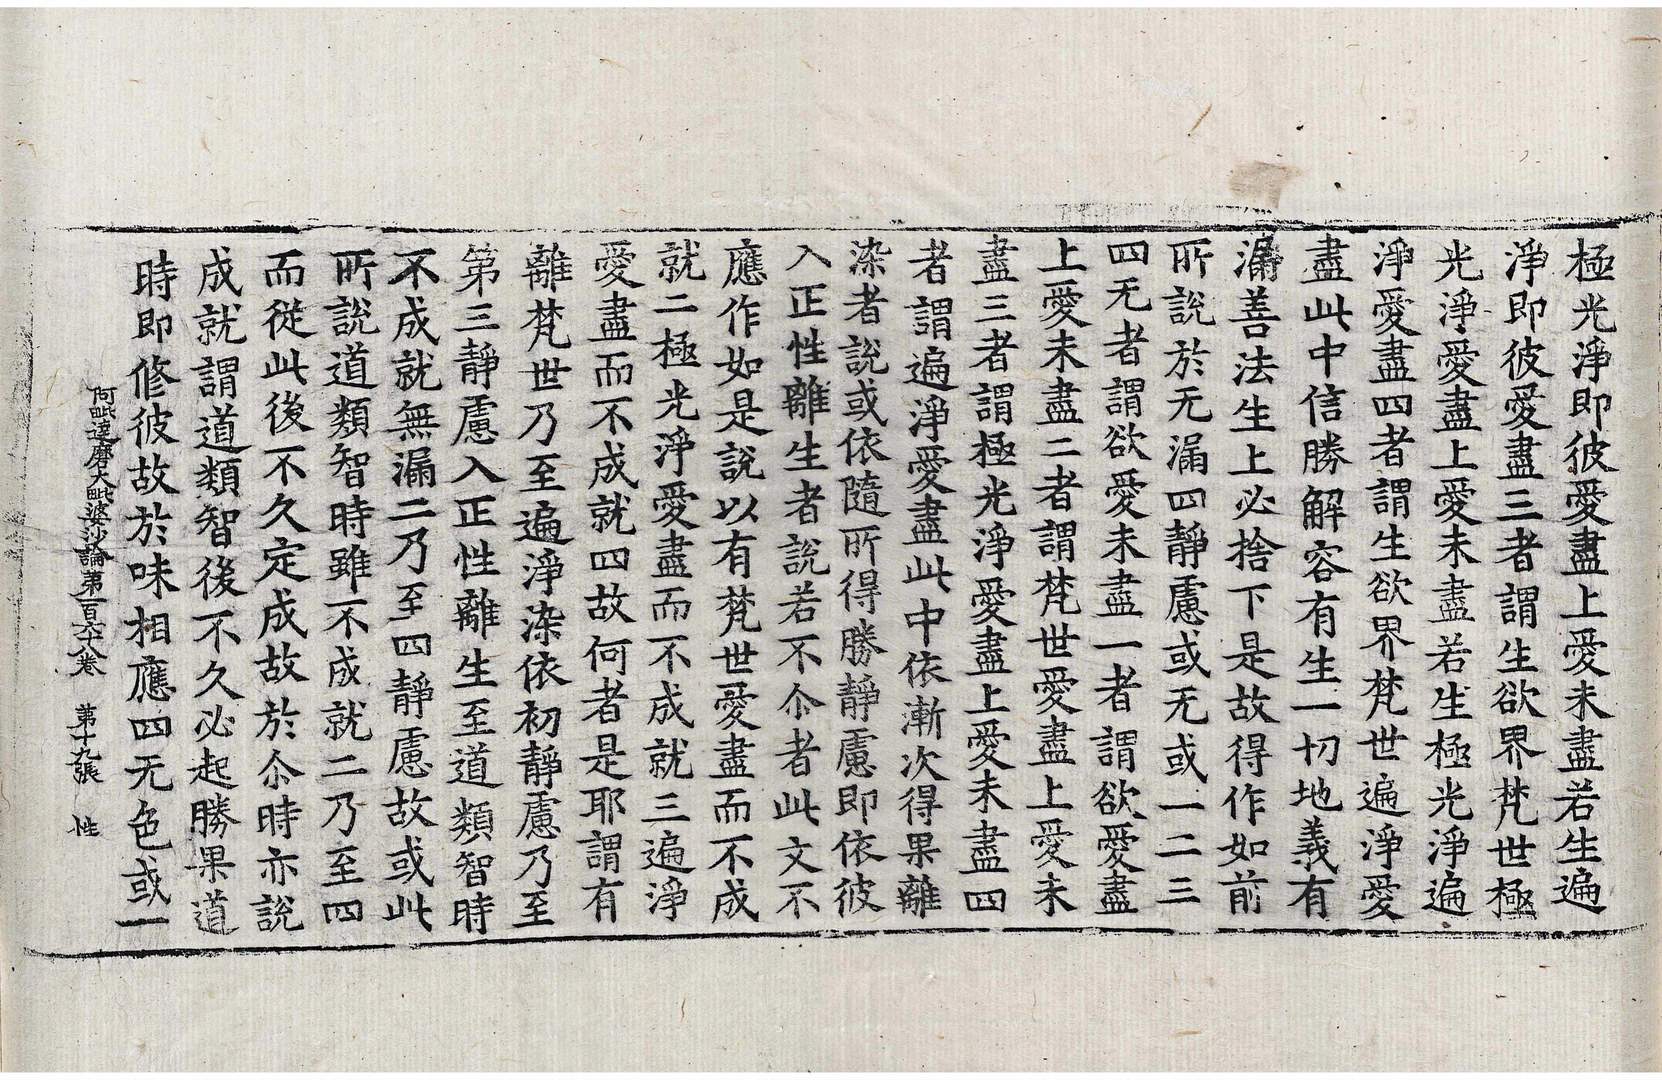 極光淨即彼愛盡上愛未盡若生遍
淨即彼愛盡三者謂生欲界梵世極
光淨愛盡上愛未盡若生極光淨遍
淨愛盡四者謂生欲界梵世遍淨愛
盡此中信勝解容有生一切地義有
漏善法生上必捨下是故得作如前
所說於无漏四靜慮或无或一二三
四无者謂欲愛未盡一者謂欲愛盡
上愛未盡二者謂梵世愛盡上愛未
盡三者謂極光淨愛盡上愛未盡四
者謂遍淨愛盡此中依漸次得果離
染者說或依隨所得勝靜慮即依彼
入正性離生者說若不尒者此文不
應作如是說以有梵世愛盡而不成
就二極光淨愛盡而不成就三遍淨
愛盡而不成就四故何者是耶謂有
離梵世乃至遍淨染依初靜慮乃至
第三靜慮入正性離生至道類智時
不成就無漏二乃至四靜慮故或此
所說道類智時雖不成就二乃至四
而從此後不久定成故於尒時亦說
成就謂道類智後不久必起勝果道
時即修彼故於味相應四无色或一
阿毗達磨大毗婆沙論第一百六十八卷 第十九張 性